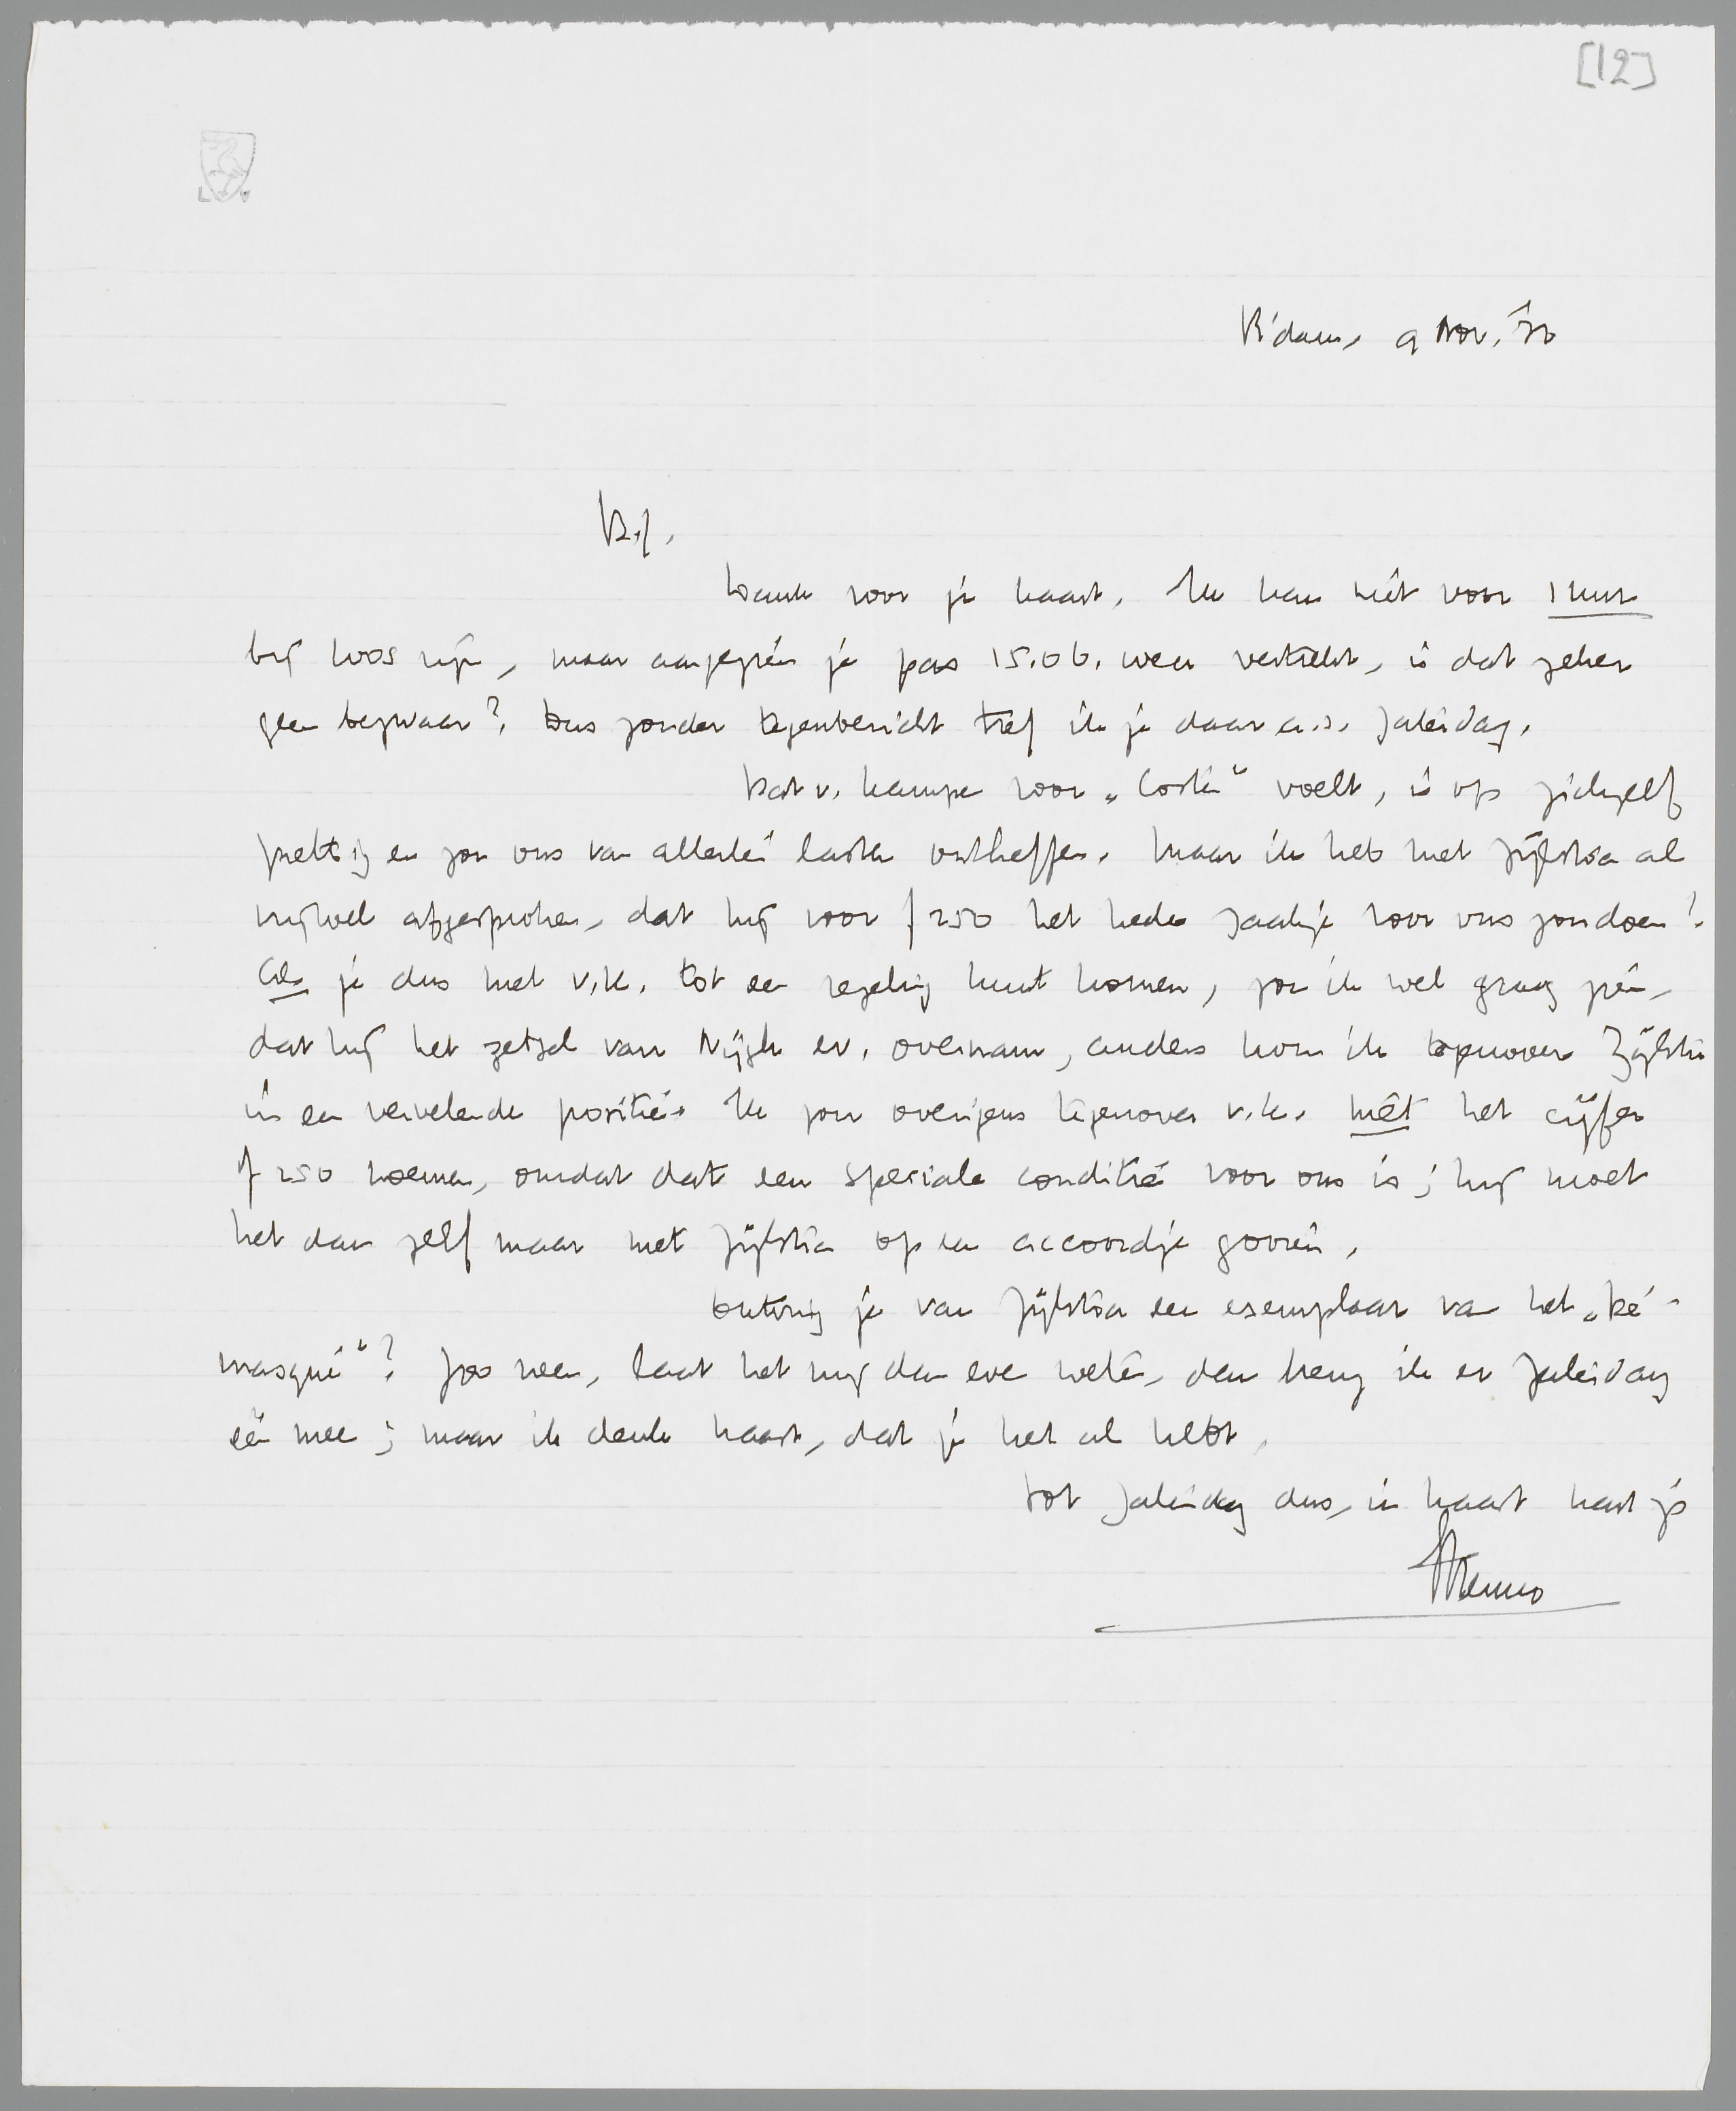 [12]
R'dam, 9 Nov. '30
B.E.,
Dank voor je kaart. Ik kan niet voor 1 uur
bij Loos zijn, maar aangezien je pas 15.06. weer vertrekt, is dat zeker
geen bezwaar? Dus zonder tegenbericht tref ik je daar a.s. Zaterdag.
Dat v. Kampen voor „Coster" voelt, is op zichzelf
prettig en zou ons van allerlei lasten ontheffen. Maar ik heb met Zijlstra al
vrijwel afgesproken, dat hij voor f 250 het heele zaakje voor ons zou doen!
Als je dus met v.K. tot een regeling kunt komen, zou ik wel graag zien,
dat hij het zetsel van Nijgh ev. overnam, anders kom ik tegenover Zijlstra
in een vervelende positie. Ik zou overigens tegenover v.K. niet het cijfer
f 250 noemen, omdat dat een speciale conditie voor ons is; hij moet
het dan zelf maar met Zijlstra op een accoordje gooien.
Ontving je van Zijlstra een exemplaar van het „Dé-
masqué"? Zoo neen, laat het mij dan even weten, dan breng ik er Zaterdag
één mee; maar ik denk haast, dat je het al hebt.
Tot Zaterdag dus, in haast hart. gr.
Menno